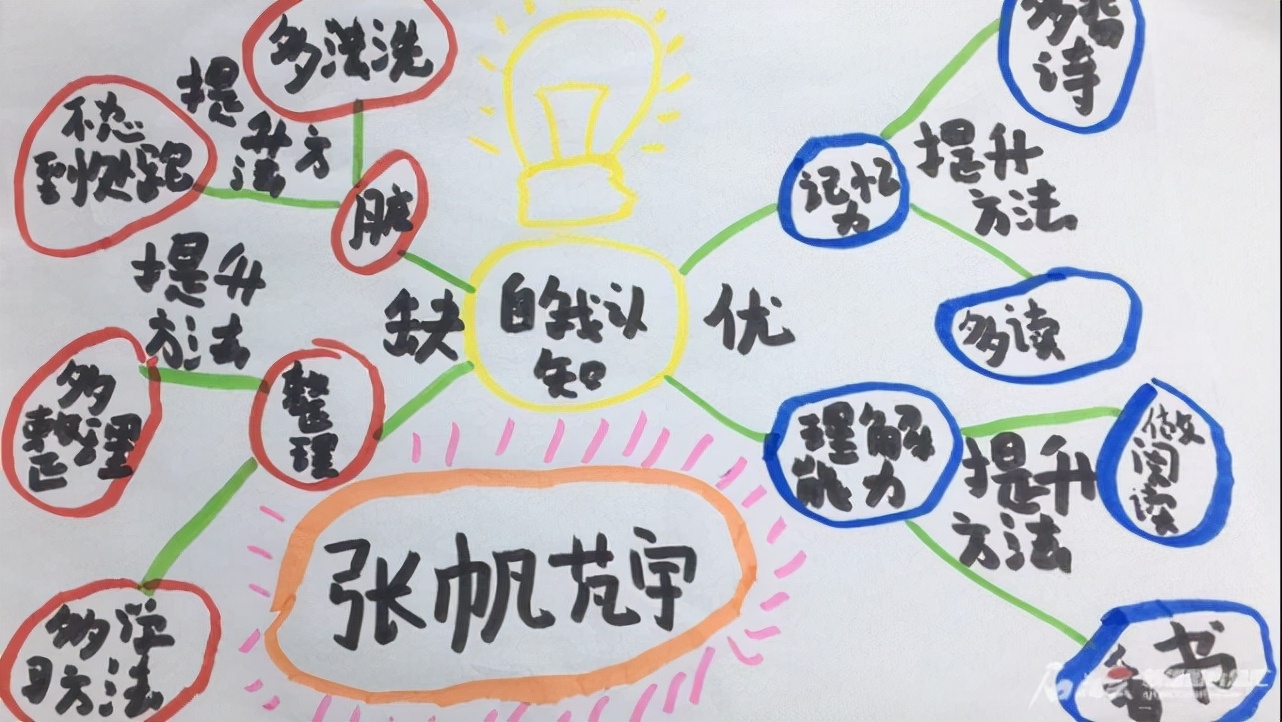 多洗洗
提
升方
法
不
到处跑
脏
提升
方法
缺
整
理
多
整理
多学
习方法
自我认
知
优
张帆宇
记忆
力
提升
方法
诗
多读
理解
能力
提升
方法
做
阅
读
看书